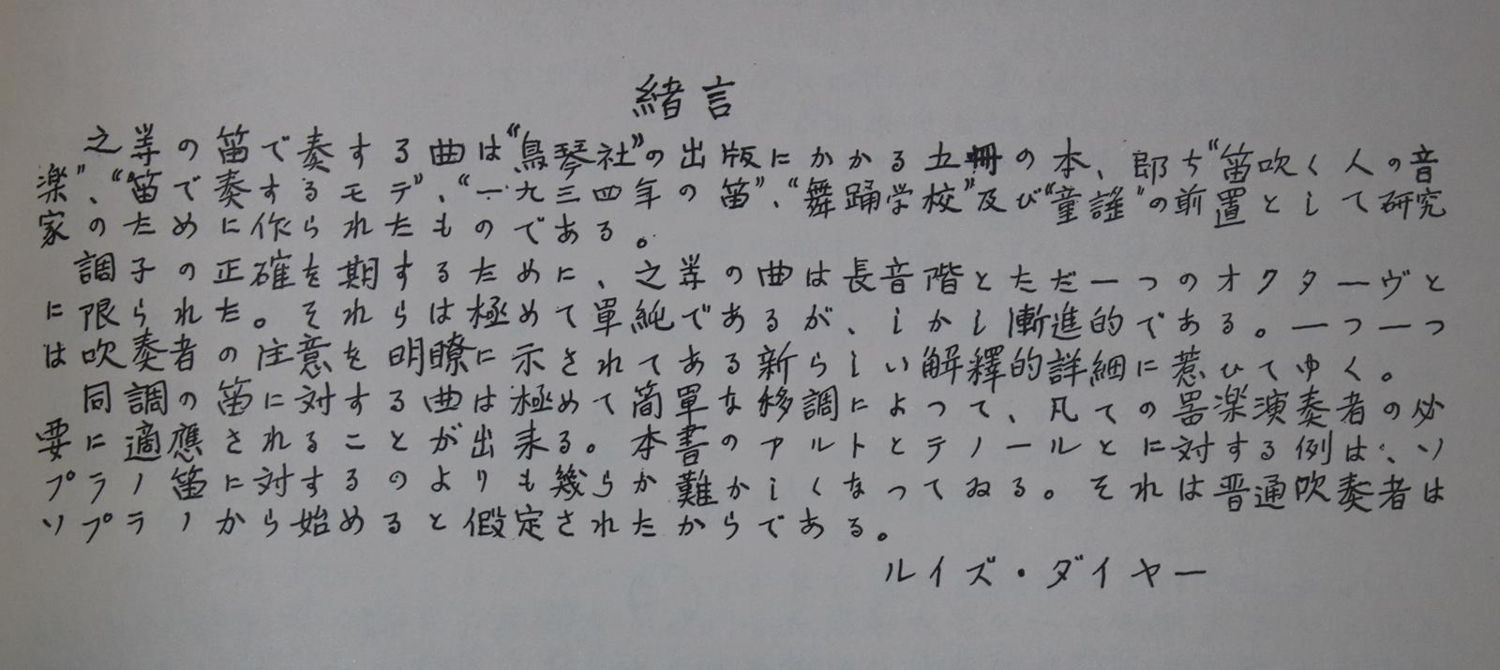 緒言
之等の笛で奏する曲は“鳥琴社”の出版にかかる五冊の本、即ち“笛吹く人の音
楽”、“笛で奏するモテ”、“一九三四年の笛”、“舞踊学校”及び“童謡”の前置として研究
家のために作られたものである。
調子の正確を期するために、之等の曲は長音階とただ一つのオクターヴと
に限られた。それらは極めて單純であるが、しかし漸進的である。一つ一つ
は吹奏者の注意を明瞭に示されてある新らしい解釋的詳細に惹ひてゆく。
同調の笛に対する曲は極めて簡單な移調によつて、凡ての器楽演奏者の必
要に適應されることが出来る。本書のアルトとテノールとに対する例は、ソ
プラノ笛に対するのよりも幾らか難かしくなってゐる。それは普通吹奏者は
ソプラノから始めると假定されたからである。
ルイズ・ダイヤー